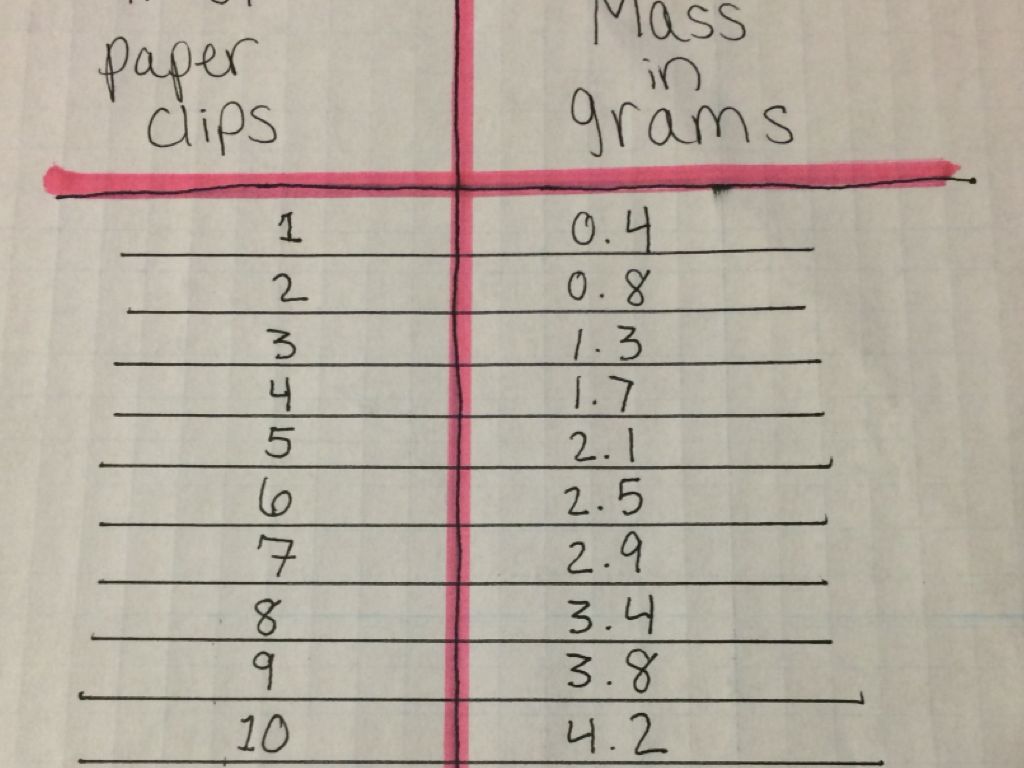 paper
clips
Mass
in
grams
1 0.4
2 0.8
3 1.3
4 1.7
5 2.1
6 2.5
7 2.9
8 3.4
9 3.8
10 4.2